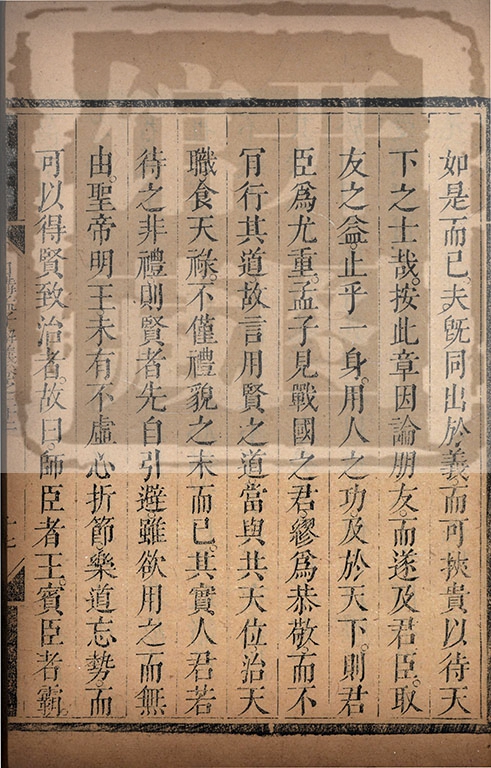 如是而已。夫旣同出於義而可挾貴以待天
下之士哉。按此章因論朋友。而遂及君臣。取
友之益。止乎一身。用人之功及於天下。則君
臣爲尤重。孟子見戰國之君。繆爲恭敬。而不
肎行其道故言用賢之道當與共天位治天
職食天祿。不僅禮貌之末而已。其實人君若
待之非禮則賢者先自引避。雖欲用之而無
由。聖帝明王未有不虛心折節樂道忘勢。而
可以得賢致治者。故曰。師臣者王。賓臣者霸。